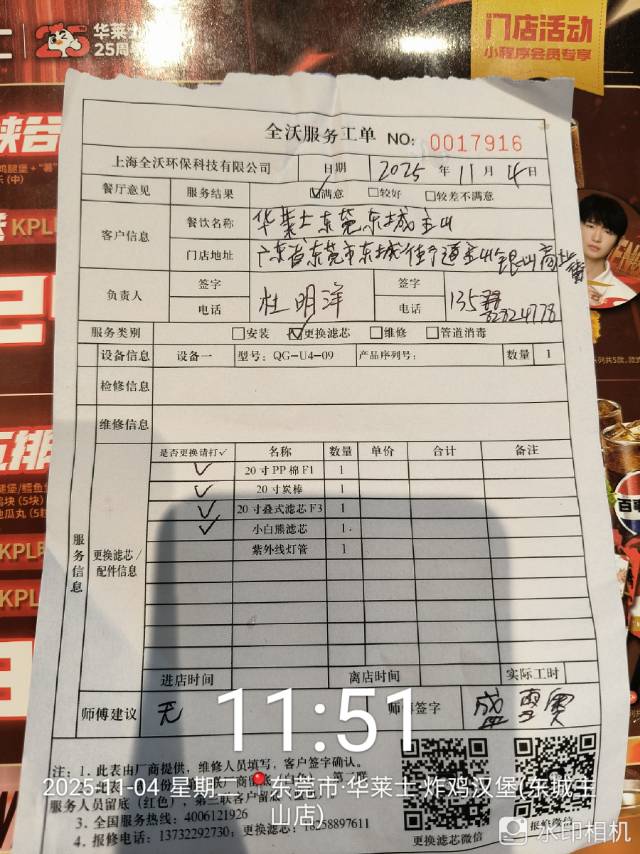 华莱士
25周年
门店活动
小程序会员专享
全沃服务工单 NO: 0017916
上海全沃环保科技有限公司 日期 2025 年 11 月 4 日
餐厅意见 服务结果 ☑满意 □较好 □较差不满意
客户信息 餐饮名称 华莱士东莞东城主山
门店地址 广东省东莞市东城街道主山
负责人 签字 杜明洋 签字
电话 电话
服务类别 □安装 ☑更换滤芯 □维修 □管道消毒
设备信息 设备一 型号: QG-U4-09 产品序列号: 数量 1
检修信息
维修信息
服务信息 更换滤芯/配件信息
是否更换请打✓ 名称 数量 单价 合计 备注
✓ 20寸PP棉F1 1
✓ 20寸炭棒 1
✓ 20寸叠式滤芯F3 1
✓ 小白熊滤芯 1
紫外线灯管 1
进店时间 离店时间 实际工时
师傅建议 无 签字
11:51
注: 1. 此表由厂商提供, 维修人员填写, 客户签字确认。
2025-11-04 星期二 东莞市·华莱士·炸鸡汉堡(东城主山店)
3. 全国服务热线: 4006121926
4. 报修电话: 13732292730; 更换滤芯:
更换滤芯微信
报修微信
水印相机